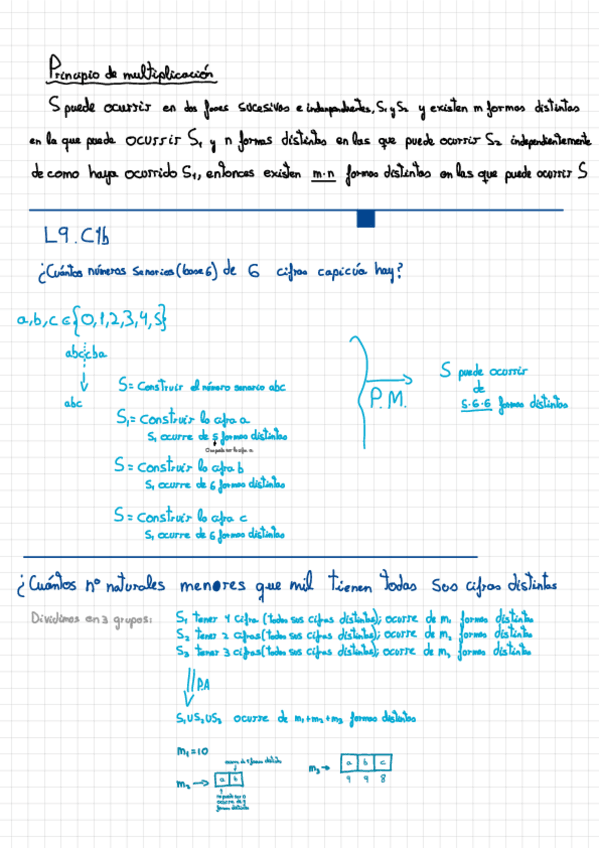 Principio de multiplicación
S puede ocurrir en dos fases sucesivas e independientes, S₁ y S₂ y existen m formas distintas
en la que puede ocurrir S₁ y n formas distintas en las que puede ocurrir S₂ independientemente
de como haya ocurrido S₁, entonces existen m·n formas distintas en las que puede ocurrir S
L9.C1b
¿Cuántos números senarios (base 6) de 6 cifras capicúa hay?
a,b,c ∈ {0,1,2,3,4,5}
abccba
abc
S = Construir el número senario abc
S₁ = Construir la cifra a
S₁ ocurre de 5 formas distintas
S = Construir la cifra b
S₁ ocurre de 6 formas distintas
S = Construir la cifra c
S₁ ocurre de 6 formas distintas
P.M.
S puede ocurrir
de
5·6·6 formas distintas
¿Cuántos nº naturales menores que mil tienen todas sus cifras distintas
Dividimos en 3 grupos:
S₁ tener 1 cifra (todas sus cifras distintas); ocurre de m₁ formas distintas
S₂ tener 2 cifras (todas sus cifras distintas); ocurre de m₂ formas distintas
S₃ tener 3 cifras (todas sus cifras distintas); ocurre de m₃ formas distintas
P.A
S₁US₂US₃ ocurre de m₁+m₂+m₃ formas distintas
m₁=10
m₂ → a b
m₃ → a b c
9 9 8